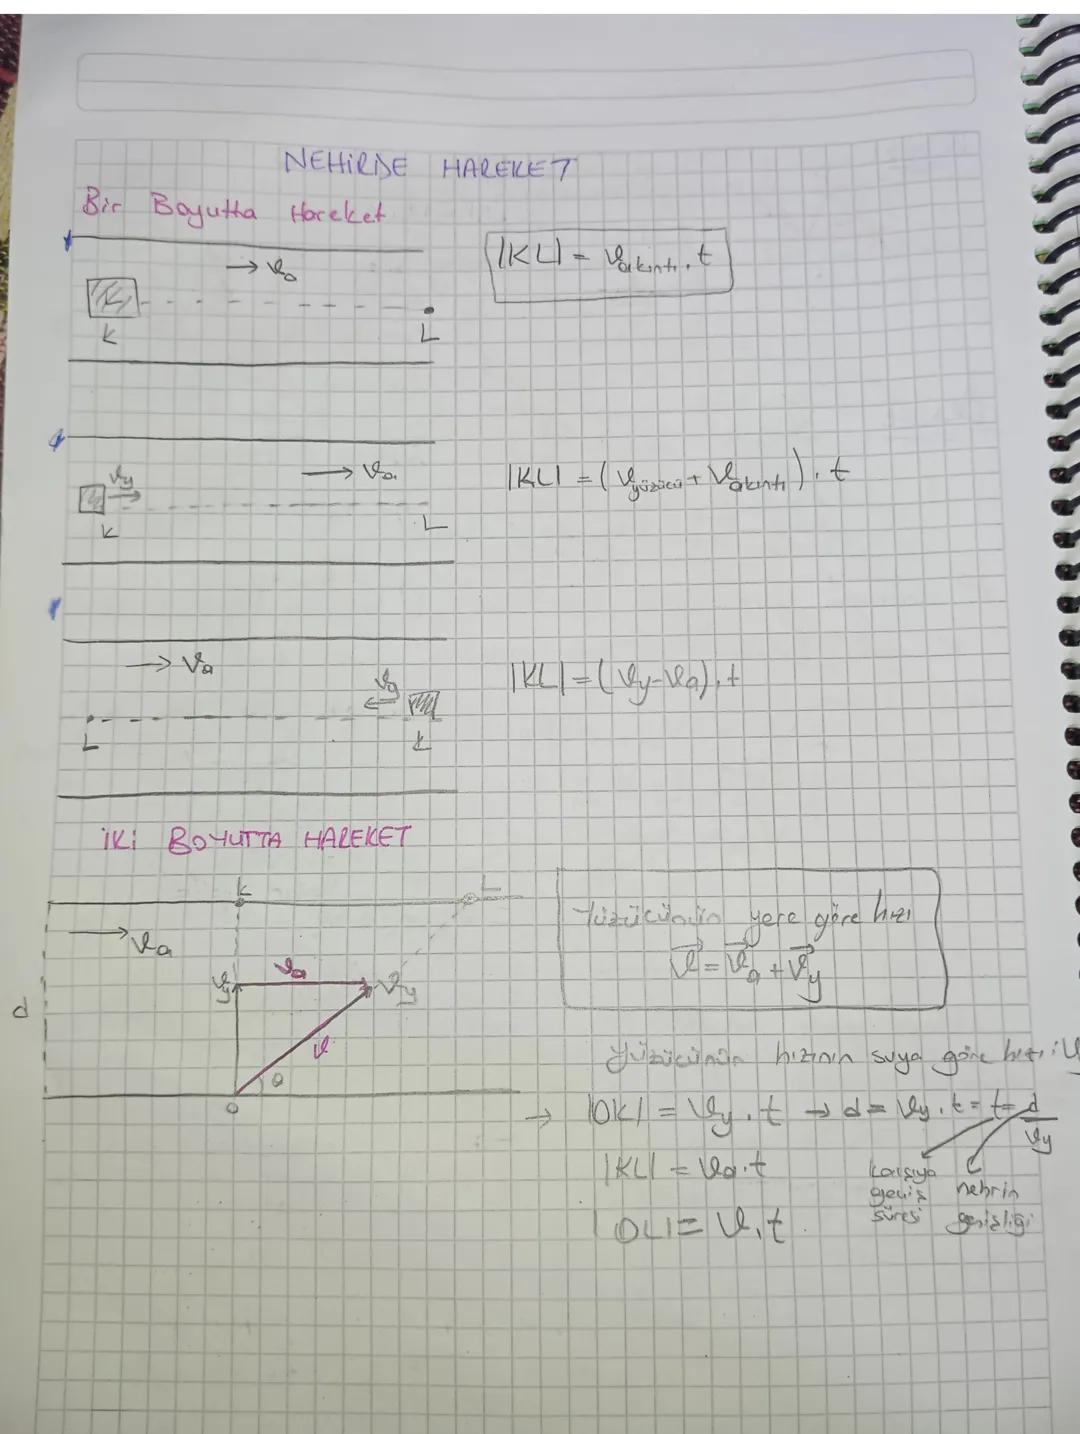 NEHİRDE HAREKET
Bir Boyutta Hareket
→ V₀
|KL| = Vakıntı . t
K
L
Vy
→ Va
|KL| = (Vyüzücü + Vakıntı) . t
K
L
→ Va
Vy
|KL| = (Vy - Va) . t
L
K
İKİ BOYUTTA HAREKET
K
L
→ Va
Yüzücünün yere göre hızı
V = Va + Vy
Vy
Va
Vy
d
V
θ
O
Yüzücünün hızının suya göre hızı : V
→ |OK| = Vy . t → d = Vy . t = t = d/Vy
|KL| = Va . t
karşıya geçiş süresi
nehrin genişliği
|OL| = V . t